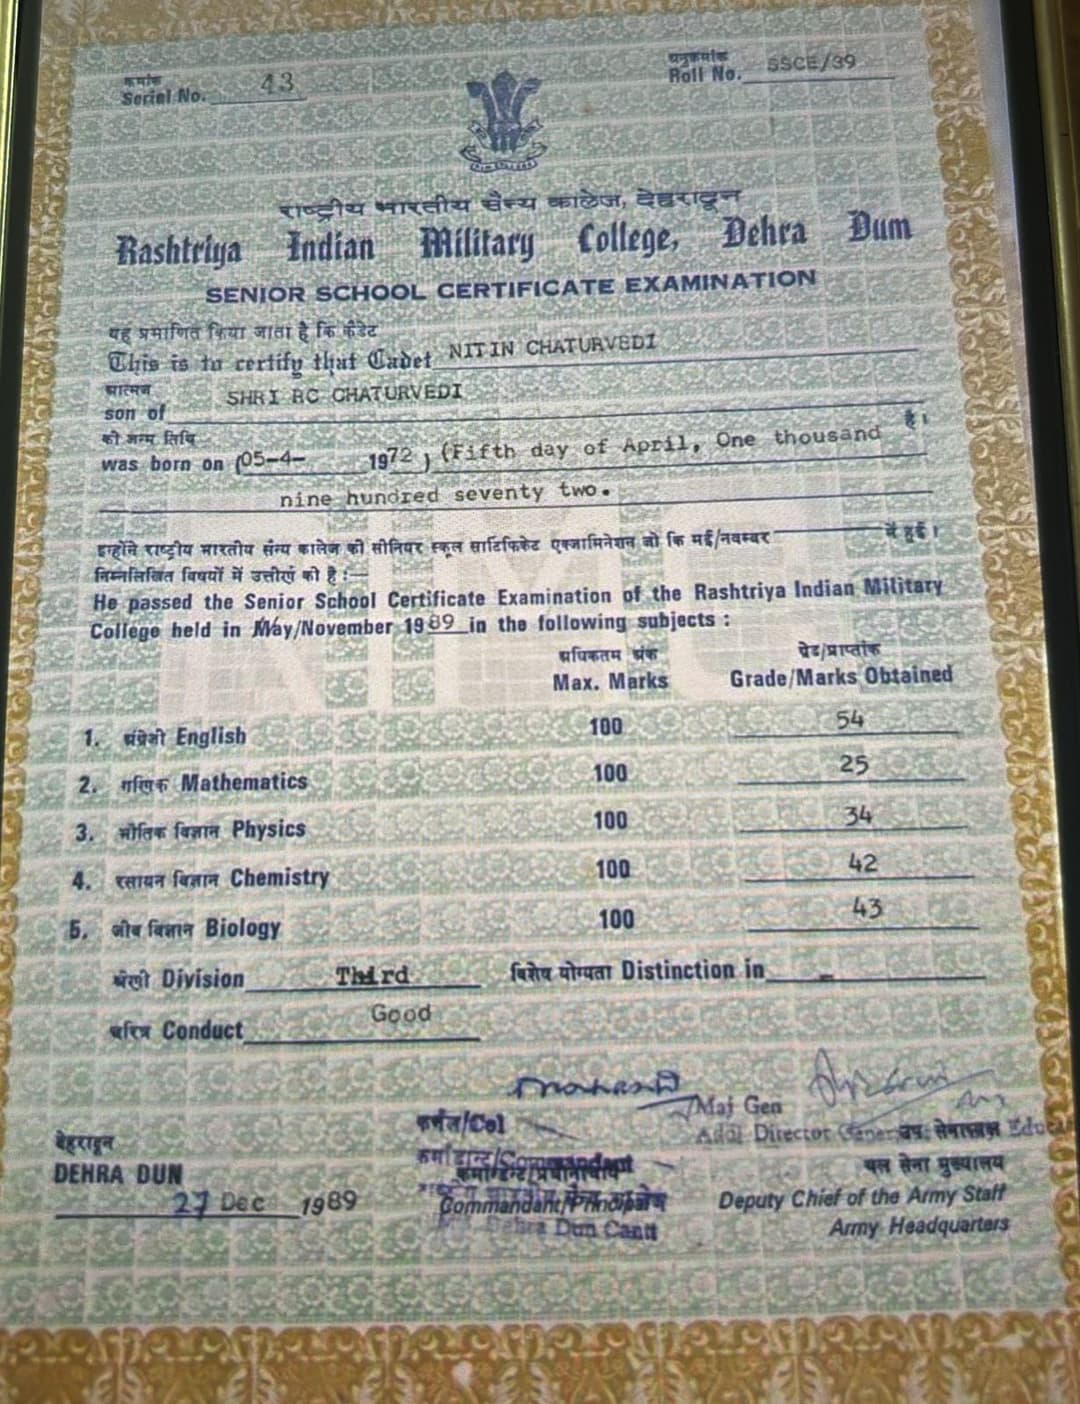 क्रमांक
Serial No. 43
अनुक्रमांक
Roll No. SSCE/39
राष्ट्रीय भारतीय सैन्य कालेज, देहरादून
Rashtriya Indian Military College, Dehra Dum
SENIOR SCHOOL CERTIFICATE EXAMINATION
यह प्रमाणित किया जाता है कि कैडेट
This is to certify that Cadet NITIN CHATURVEDI
आत्मज
son of SHRI RC CHATURVEDI
की जन्म तिथि है।
was born on (05-4- 1972) (Fifth day of April, One thousand
nine hundred seventy two.
इन्होंने राष्ट्रीय भारतीय सैन्य कालेज की सीनियर स्कूल सार्टिफिकेट एक्जामिनेशन जो कि मई/नवम्बर में हुई।
निम्नलिखित विषयों में उत्तीर्ण की है :—
He passed the Senior School Certificate Examination of the Rashtriya Indian Military
College held in May/November 1989 in the following subjects :
अधिकतम अंक ग्रेड/प्राप्तांक
Max. Marks Grade/Marks Obtained
1. अंग्रेजी English 100 54
2. गणित Mathematics 100 25
3. भौतिक विज्ञान Physics 100 34
4. रसायन विज्ञान Chemistry 100 42
5. जीव विज्ञान Biology 100 43
श्रेणी Division Third विशेष योग्यता Distinction in -
चरित्र Conduct Good
Maj Gen
कर्नल/Col
Addl Director
देहरादून
DEHRA DUN
थल सेना मुख्यालय
27 Dec 1989
Commandant/Principal
Deputy Chief of the Army Staff
Dehra Dun Cantt
Army Headquarters